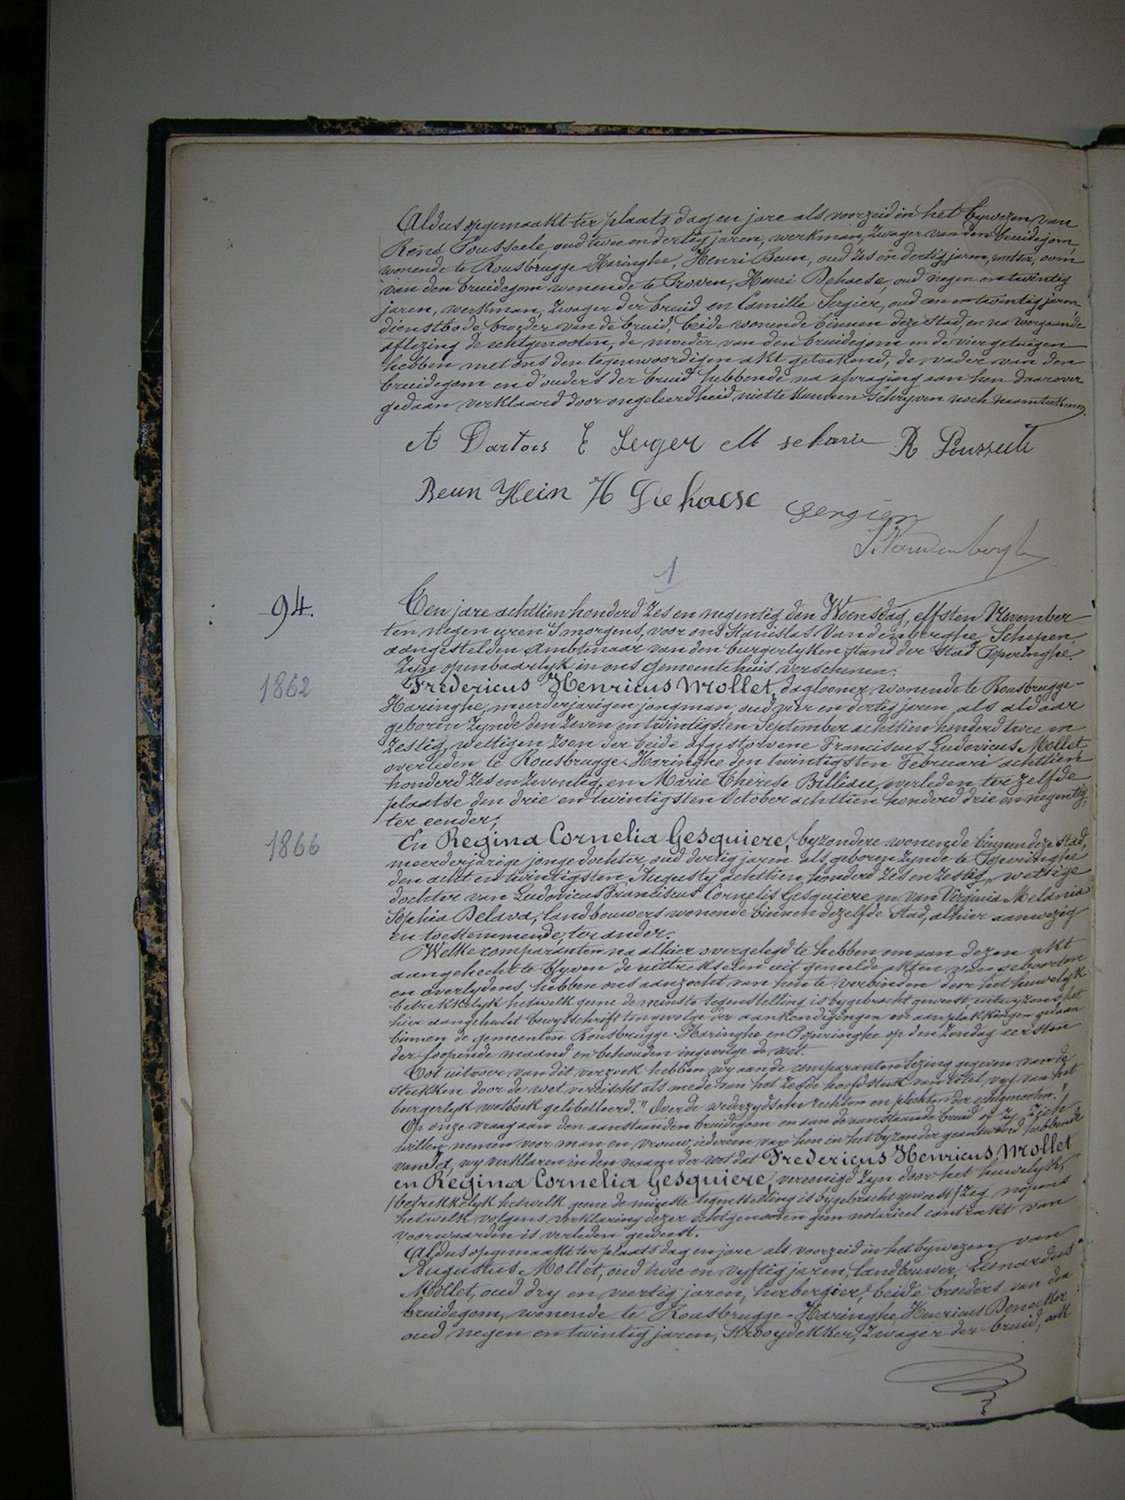 Aldus opgemaakt ter plaats dag en jare als voorzeid in het bywezen van
René Pousseele, oud twee en dertig jaren, werkman, zwager van den bruidegom,
wonende te Rousbrugge-Haringhe, Henri Beun, oud zes en dertig jaren, oom
van den bruidegom wonende te Proven, Henri Dehaese, oud negen en twintig
jaren, werkman, zwager der bruid en Camille Sergier, oud een en twintig jaren,
dienstbode broeder van de bruid, beide wonende binnen deze stad, en na voorgaande
aflezing de echtgenooten, de moeder van den bruidegom en de vier getuigen
hebben met ons den tegenwoordigen akt geteekend, de vader van den
bruidegom en d'ouders der bruid hebbende na afvraging aan hen daarover
gedaan verklaard door ongeleerdheid niet te kunnen schryven noch naamteekenen
A Dartois E Serger M R Pousseele
Beun Hein H Dehaese Sergier
S. Vandenberghe
1
94.
Ten jare achttien honderd zes en negentig den Woensdag, elfsten November
ten negen uren 's morgens, voor ons Stanislas Vandenberghe, Schepen,
aangestelden Ambtenaar van den burgerlyken stand der Stad Poperinghe
zyn openbaarlyk in ons gemeentehuis verschenen:
1862
Fredericus Henricus Mollet, daglooner, wonende te Rousbrugge-
Haringhe, meerderjarigen jongman, oud vier en dertig jaren als aldaar
geboren zynde den zeven en twintigsten September achttien honderd twee en
zestig, wettigen zoon der beide afgestorvene Franciscus Ludovicus Mollet,
overleden te Rousbrugge-Haringhe den twintigsten Februari achttien
honderd zes en zeventig, en Marie Thérèse Billiau, overleden ter zelfde
plaatse den drie en twintigsten October achttien honderd drie en negentig,
ter eender;
1866
En Regina Cornelia Gesquiere, byzondere wonende binnen deze stad,
meerderjarige jonge dochter, oud dertig jaren als geboren zynde te Poperinghe
den acht en twintigsten Augusty achttien honderd zes en zestig, wettige
dochter van Ludovicus Franciscus Cornelis Gesquiere en van Virginia Melania
Sophia Delava, landbouwers wonende binnen dezelfde stad, alhier aanwezig
en toestemmende, ter ander.
Welke comparanten na alhier overgelegd te hebben om aan dezen akt
aangehecht te blyven de uittreksels uit gemelde akten van geboorten
en overlydens, hebben ons aanzocht van hen te verbinden door het huwelyk
betrekkelyk hetwelk geene de minste tegenstelling is bygebracht geweest, uitwyzens het
hier aangehecht bewysschrift ten gevolge der aankondigingen en aanplakkingen gedaan
binnen de gemeenten Rousbrugge-Haringhe en Poperinghe op den zondag eersten
der loopende maand en behouden ingevolge de wet.
Tot uitvoer van dit verzoek hebben wy aan de comparanten lezing gegeven van de
stukken door de wet vereischt als mede van het zesde hoofdstuk van titel vyf van het
burgerlyk wetboek getitelleerd: "Over de wederzydsche rechten en plichten der echtgenooten".
Op onze vraag aan den aanstaanden bruidegom en aan de aanstaande bruid of zy zich
willen nemen voor man en vrouw, iedereen van hen in het byzonder geantwoord hebbende
van Ja, wy verklaren in den naam der wet dat Fredericus Henricus Mollet
en Regina Cornelia Gesquiere, vereenigd zyn door het huwelyk,
betrekkelyk hetwelk geene de minste tegenstelling is bygebracht geweest, nopens
hetwelk volgens verklaring dezer echtgenooten geen notarieel contrakt van
voorwaarden is verleden geweest.
Aldus opgemaakt ter plaats dag en jare als voorzeid in het bywezen van
Augustus Mollet, oud twee en vyftig jaren, landbouwer, Leonardus
Mollet, oud dry en veertig jaren, herbergier, beide broeders van den
bruidegom, wonende te Rousbrugge-Haringhe, Henricus
oud negen en twintig jaren, strooydekker, zwager der bruid, ook